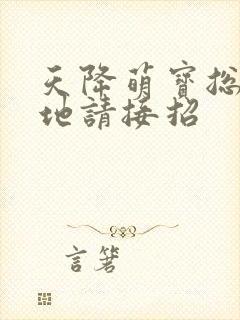 天降萌寶総
地請接招
言箸